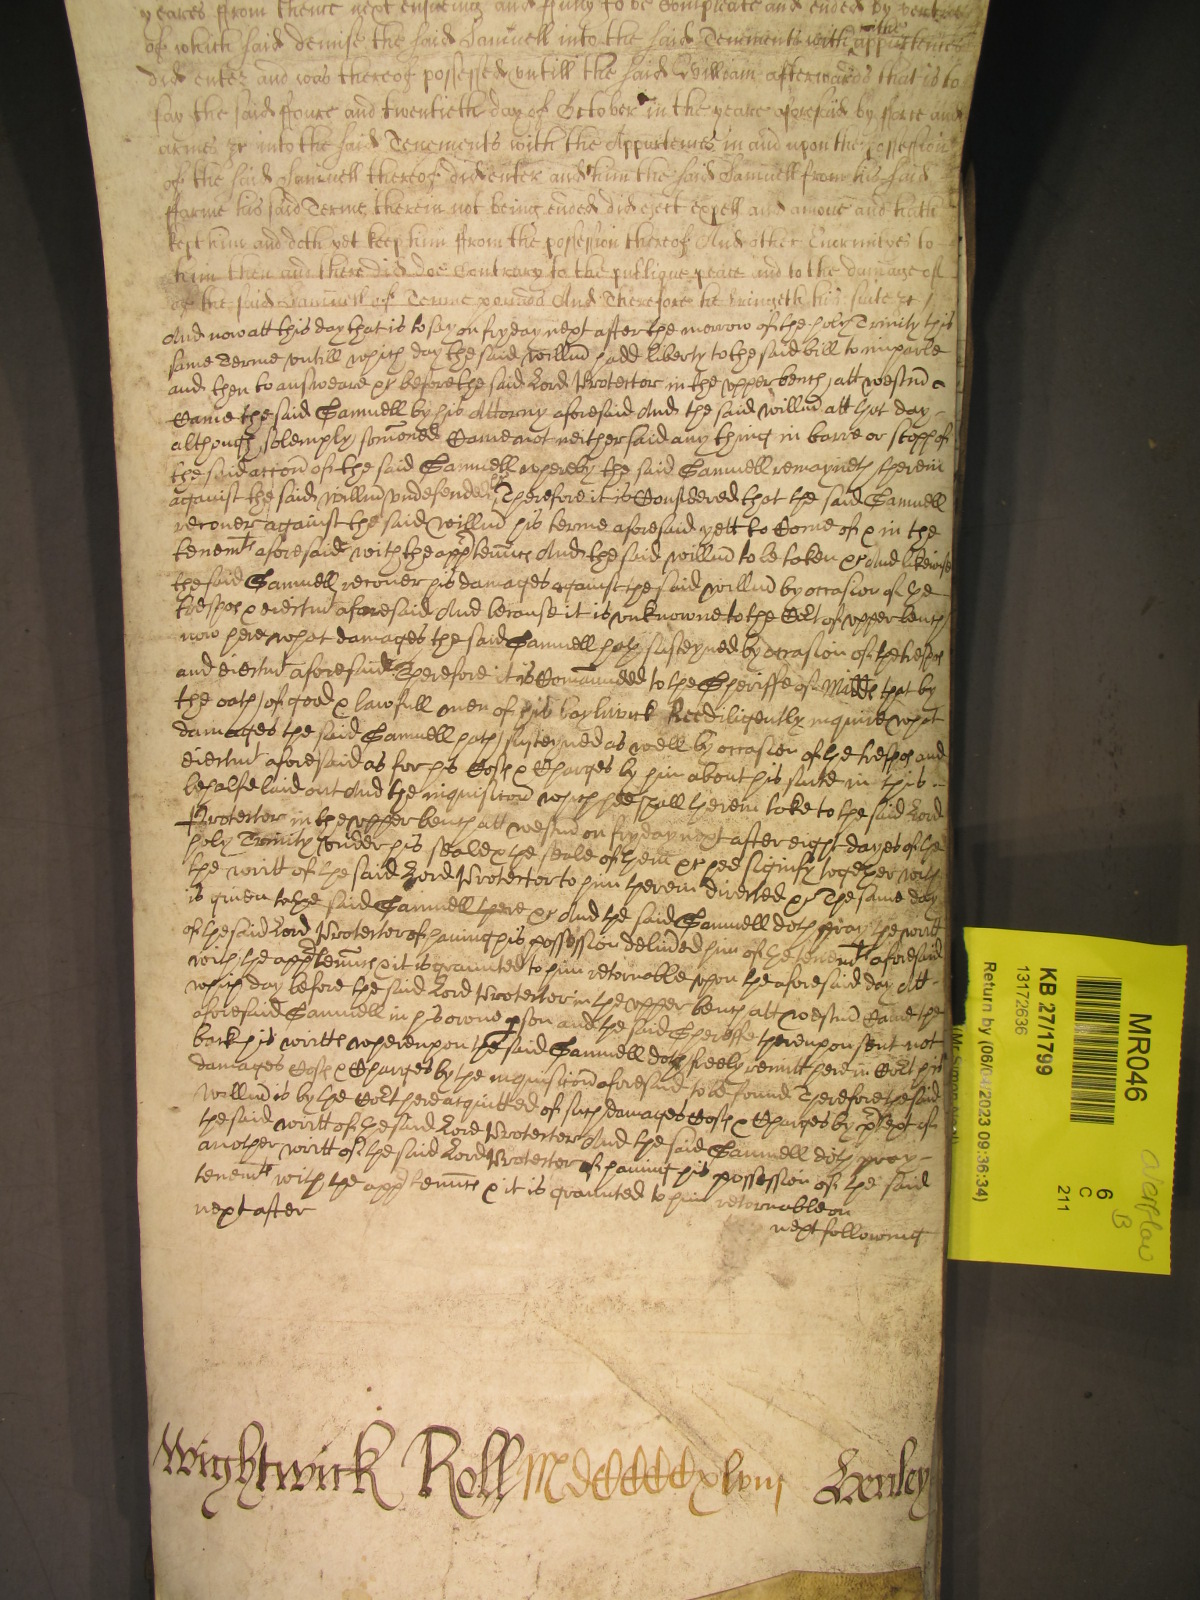 yeares from thence next ensueing and fully to be Compleate and ended by vertue
of which said demise the said Samuell into the said Tenements with the appurtences
did enter and was thereof possessed untill the said William afterwards that is to
say the said ffoure and twentieth day of October in the yeare aforesaid by force and
armes &c into the said Tenements with the Appurtences in and upon the possession
of the said Samuell thereof did enter and him the said Samuell from his said
ffarme his said Terme therein not being ended did eject expell and amove and hath
kept him and doth yet keep him ffrom the possession thereof And other Enormityes to
him then and there did doe Contrary to the publique peace and to the damage of
of the said Samuell of Tenne pounds And Therefore he bringeth his suite &c
And now att this day that is to say on fryday next after the morrow of the holy Trinity this
same Terme untill which day the said Willm hadd liberty to the said bill to imparle
and then to answeare &c before the said Lord Protector in the upper bench att westm
Came the said Samuell by his Attorny aforesaid And the said Willm att that day
although solemply somoned Came not neither said any thing in barre or stopp of
the said accon of the said Samuell whereby the said Samuell remayneth therein
against the said Willm undefended Therefore it is Considered that the said Samuell
recover against the said Willm his terme aforesaid yett to Come of & in the
tenemts aforesaid with the apptennces And the said Willm to be taken &c And likewise
the said Samuell recover his damages against the said Willm by occasion of the
trespas & eiectmt aforesaid And because it is unknowne to the Cort of upper bench
now here what damages the said Samuell hath susteyned by occasion of the trespas
and eiectmt aforesaid Therefore it is Comaunded to the Sheriffe of Middx that by
the oath of good & lawfull men of his bayliwick Hee diligently inquire what
damages the said Samuell hath susteyned as well by occasion of the trespas and
eiectmt aforesaid as for his Costs & Charges by him about his suite in this
behalfe laid out And the inquisicon which hee shall therein take to the said Lord
Protector in the upper bench att westm on fryday next after eight dayes of the
holy Trinity under his seale & the seale of them &c hee signify together with
the writt of the said Lord Protector to him therein directed &c The same day
is given to the said Samuell there &c And the said Samuell doth pray the writt
of the said Lord Protector of haveing his possession delivered him of the tenemts aforesaid
with the apptennces & it is graunted to him returnable upon the aforesaid day Att
which day before the said Lord Protector in the upper bench att westm Came the
aforesaid Samuell in his owne pson and the said Sheriffe thereupon sent not
back his writts whereupon the said Samuell doth freely remitt here in Cort his
damages Costs & Charges by the inquisicon aforesaid to be found Therefore the said
Willm is by the Cort here acquitted of such damages Costs & Charges by ptext of
the said writt of the said Lord Protector And the said Samuell doth pray
another writt of the said Lord Protector of haveing his possession of the said
tenemts with the apptennces & it is graunted to him returnable on
next after next following
Wightwick Roll MdCCCCxlviij
MR046
KB 27/1799
13172636
Return by (06/04/2023 09:36:34)
6
C
211
B